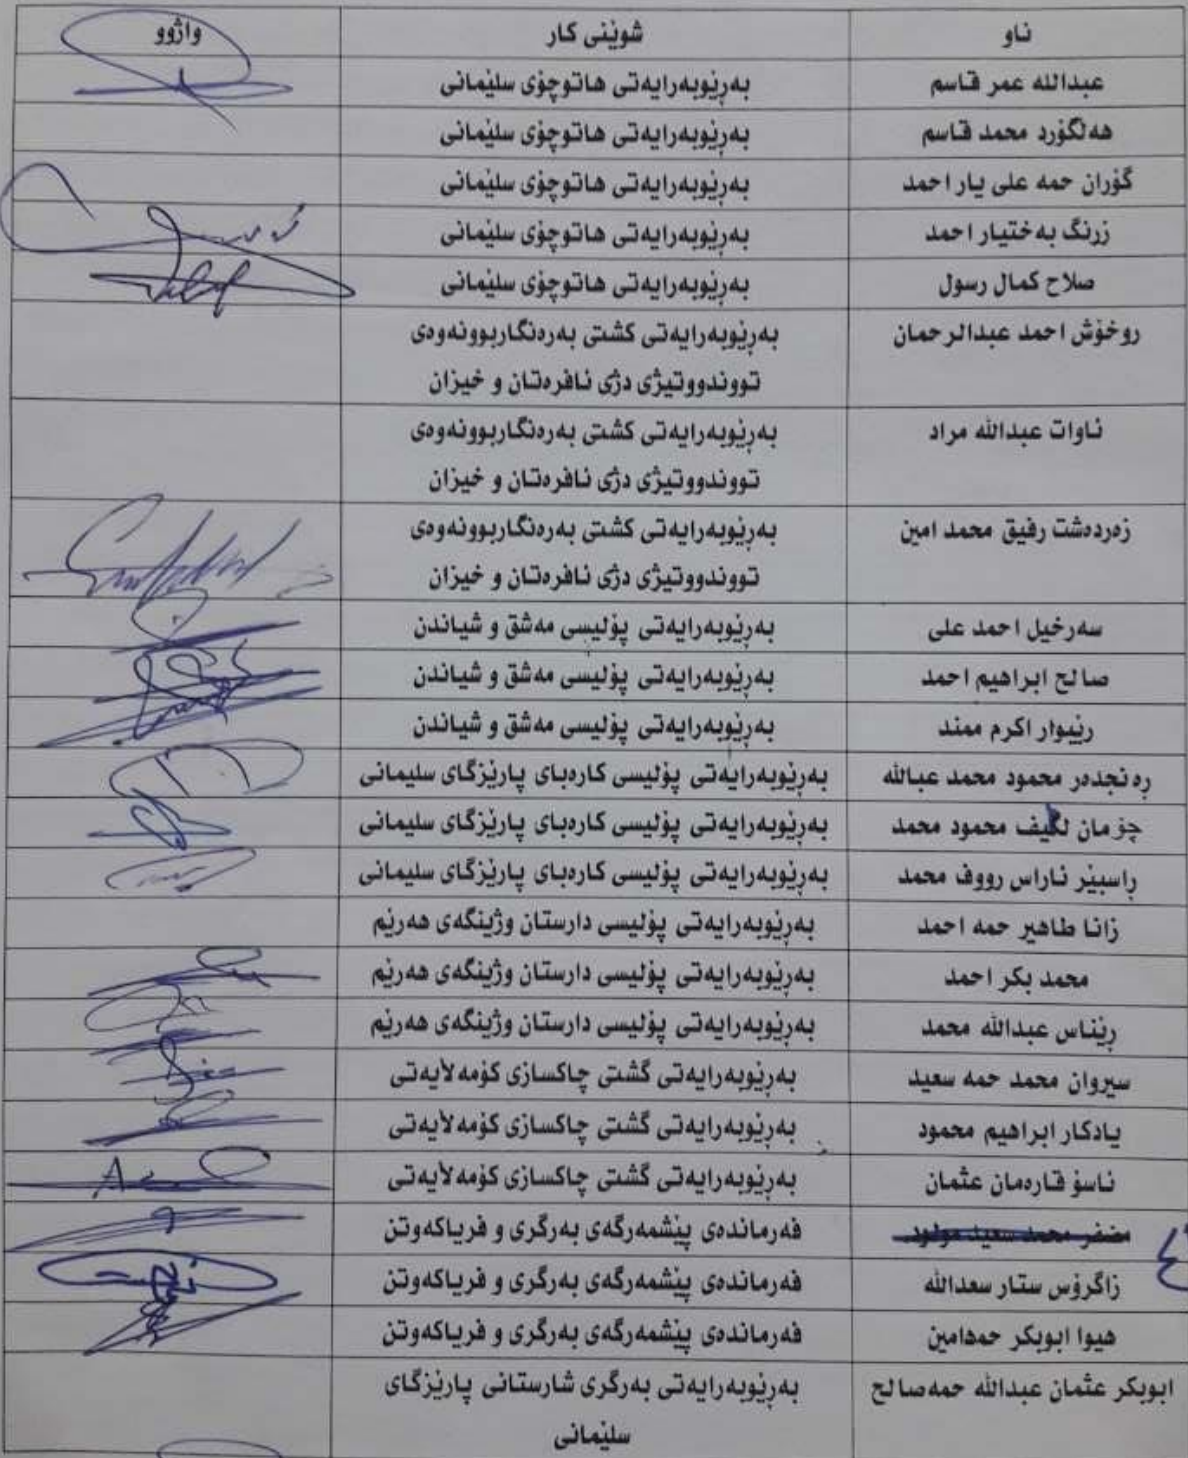 ناو شوێنی کار واژوو
عبدالله عمر قاسم بەڕێوبەرایەتی هاتوچۆی سلێمانی
هەڵگۆرد محمد قاسم بەڕێوبەرایەتی هاتوچۆی سلێمانی
گۆران حمە علی یار احمد بەڕێوبەرایەتی هاتوچۆی سلێمانی
زرنگ بەختیار احمد بەڕێوبەرایەتی هاتوچۆی سلێمانی
صلاح کمال رسول بەڕێوبەرایەتی هاتوچۆی سلێمانی
روخۆش احمد عبدالرحمان بەڕێوبەرایەتی کشتی بەرەنگاربوونەوەی
تووندووتیژی دژی ئافرەتان و خیزان
ئاوات عبدالله مراد بەڕێوبەرایەتی کشتی بەرەنگاربوونەوەی
تووندووتیژی دژی ئافرەتان و خیزان
زەردەشت رفیق محمد امین بەڕێوبەرایەتی کشتی بەرەنگاربوونەوەی
تووندووتیژی دژی ئافرەتان و خیزان
سەرخیل احمد علی بەڕێوبەرایەتی پۆلیسی مەشق و شیاندن
صالح ابراهیم احمد بەڕێوبەرایەتی پۆلیسی مەشق و شیاندن
رێبوار اکرم ممند بەڕێوبەرایەتی پۆلیسی مەشق و شیاندن
ڕەنجدەر محمود محمد عبالله بەڕێوبەرایەتی پۆلیسی کارەبای پارێزگای سلیمانی
چۆمان محمود محمد بەڕێوبەرایەتی پۆلیسی کارەبای پارێزگای سلیمانی
ڕاسبێر ئاراس رووف محمد بەڕێوبەرایەتی پۆلیسی کارەبای پارێزگای سلیمانی
زانا طاهیر حمە احمد بەڕێوبەرایەتی پۆلیسی دارستان وژینگەی هەرێم
محمد بکر احمد بەڕێوبەرایەتی پۆلیسی دارستان وژینگەی هەرێم
ڕێناس عبدالله محمد بەڕێوبەرایەتی پۆلیسی دارستان وژینگەی هەرێم
سیروان محمد حمە سعید بەڕێوبەرایەتی گشتی چاکسازی کۆمەڵایەتی
یادکار ابراهیم محمود بەڕێوبەرایەتی گشتی چاکسازی کۆمەڵایەتی
ئاسۆ قارەمان عثمان بەڕێوبەرایەتی گشتی چاکسازی کۆمەڵایەتی
مضفر محمد سعید مولود فەرماندەی پێشمەرگەی بەرگری و فریاکەوتن
زاگرۆس ستار سعدالله فەرماندەی پێشمەرگەی بەرگری و فریاکەوتن
هیوا ابوبکر حمەامین فەرماندەی پێشمەرگەی بەرگری و فریاکەوتن
ابوبکر عثمان عبدالله حمەصالح بەڕێوبەرایەتی بەرگری شارستانی پارێزگای
سلێمانی